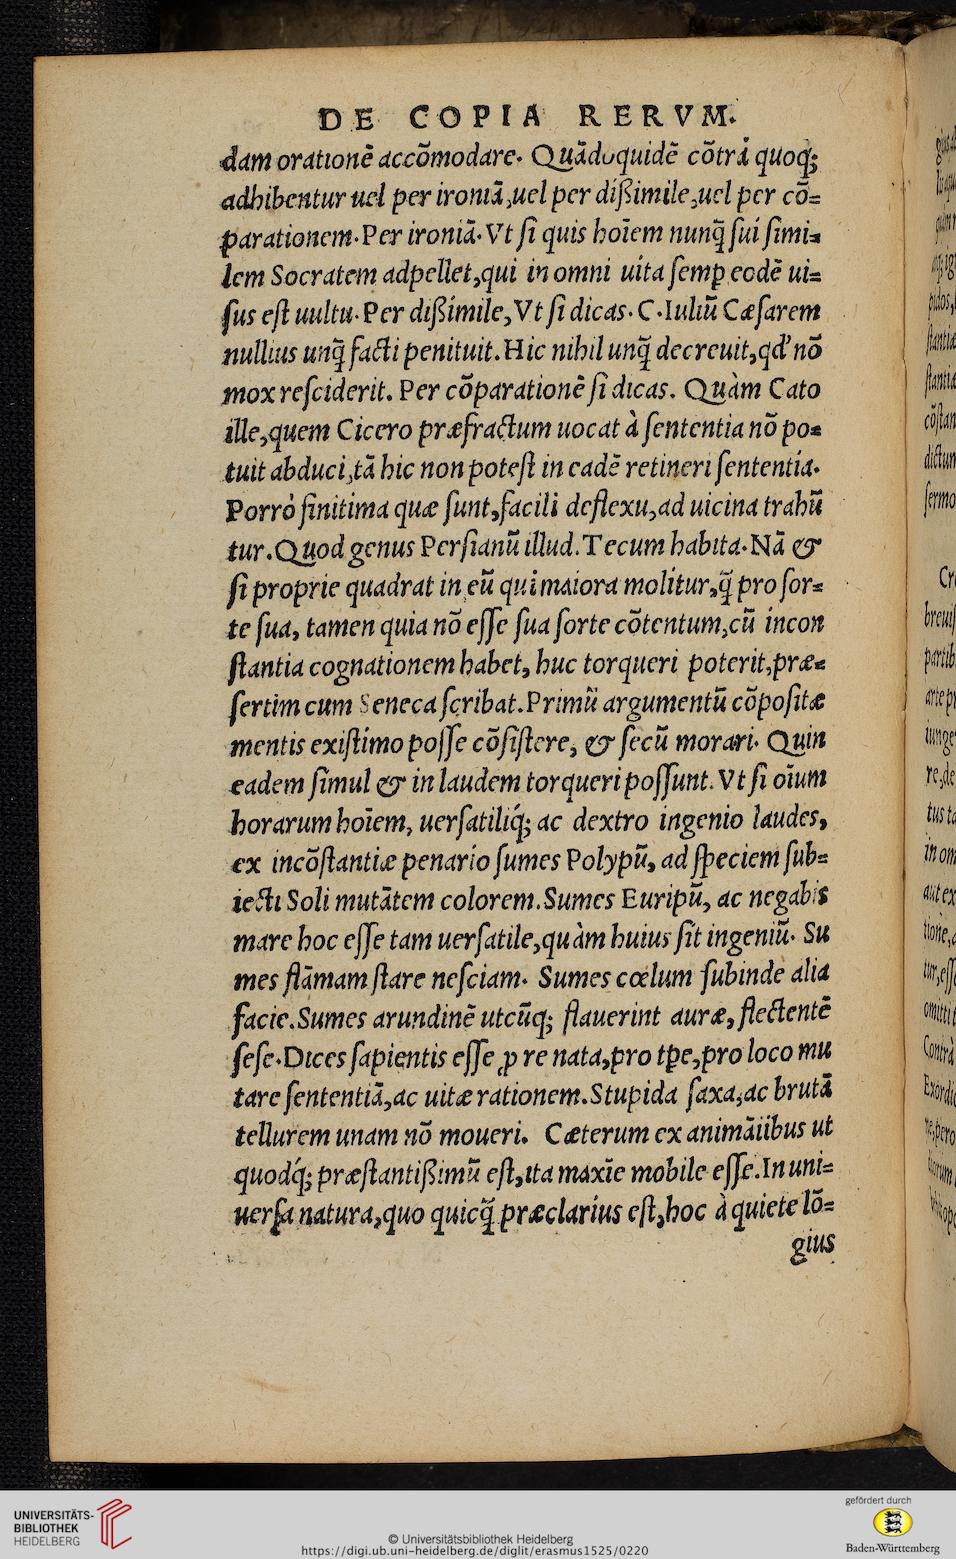 DE COPIA RERVM.
dam orationē accōmodare. Quādoquidē cōtrà quoq;
adhibentur uel per ironiā, uel per dißimile, uel per cō=
parationem. Per ironiā. Vt ſi quis hoīem nunq̃ ſui ſimi=
lem Socratem adpellet, qui in omni uita ſemp eodē ui=
ſus eſt uultu. Per dißimile, Vt ſi dicas. C. Iuliū Cæſarem
nullius unq̃ facti penituit. Hic nihil unq̃ decreuit, qd' nō
mox reſciderit. Per cōparationē ſi dicas. Quàm Cato
ille, quem Cicero præfractum uocat à ſententia nō po=
tuit abduci, tā hic non poteſt in eadē retineri ſententia.
Porrò finitima quæ ſunt, facili deflexu, ad uicina trahū
tur. Quod genus Perſianū illud. Tecum habita. Nā &
ſi proprie quadrat in eū qui maiora molitur, q̃ pro ſor=
te ſua, tamen quia nō eſſe ſua ſorte cōtentum, cū incon
ſtantia cognationem habet, huc torqueri poterit, præ=
ſertim cum Seneca ſcribat. Primū argumentū cōpoſitæ
mentis exiſtimo poſſe cōſiſtere, & ſecū morari. Quin
eadem ſimul & in laudem torqueri poſſunt. Vt ſi oīum
horarum hoīem, uerſatiliq́; ac dextro ingenio laudes,
ex incōſtantiæ penario ſumes Polypū, ad ſpeciem ſub=
iecti Soli mutātem colorem. Sumes Euripū, ac negabis
mare hoc eſſe tam uerſatile, quàm huius ſit ingeniū. Su
mes flāmam ſtare neſciam. Sumes cœlum ſubinde alia
facie. Sumes arundinē utcūq; flauerint auræ, flectentē
ſeſe. Dices ſapientis eſſe ꝓ re nata, pro tp̄e, pro loco mu
tare ſententiā, ac uitæ rationem. Stupida ſaxa, ac brutā
tellurem unam nō moueri. Cæterum ex animātibus ut
quodq́; præſtantißimū eſt, ita maxīe mobile eſſe. In uni=
uerſa natura, quo quicq̃ præclarius eſt, hoc à quiete lō=
gius
UNIVERSITÄTS-
BIBLIOTHEK
HEIDELBERG
© Universitätsbibliothek Heidelberg
https://digi.ub.uni-heidelberg.de/diglit/erasmus1525/0220
gefördert durch
Baden-Württemberg